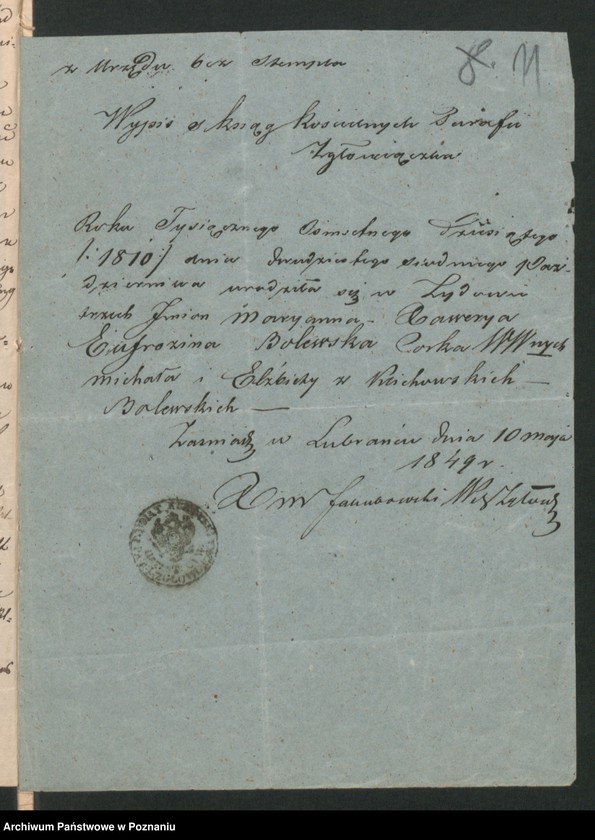 z Urzędu bez Stempla
8. 11
Wypis z ksiąg kościelnych Parafii
Zgłowiączka
Roku Tysiącznego Osmsetnego Dziesiątego
/:1810:/ dnia dwudziestego siódmego Paź-
dziernika urodziła się w
trzech Jmion Maryanna Xawerya
Eufrozina Bolewska Corka WWnych
Michała i Elżbiety z Kichowskich —
Bolewskich —
w Lubrańcu dnia 10 maja
1849 r.
X Jakubowski
Archiwum Państwowe w Poznaniu